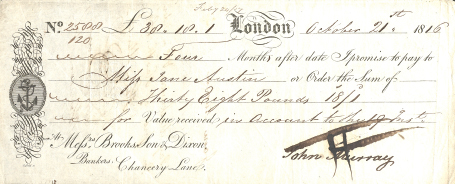 No. 2588 £38.18.1 London October 21st 1816
120
Four Months after date I promise to pay to
Miss Jane Austin or Order the Sum of
Thirty Eight Pounds 18/1
for Value received, in Account to the
At Messrs. Brooks Son & Dixon,
Bankers,
Chancery Lane.
John Murray